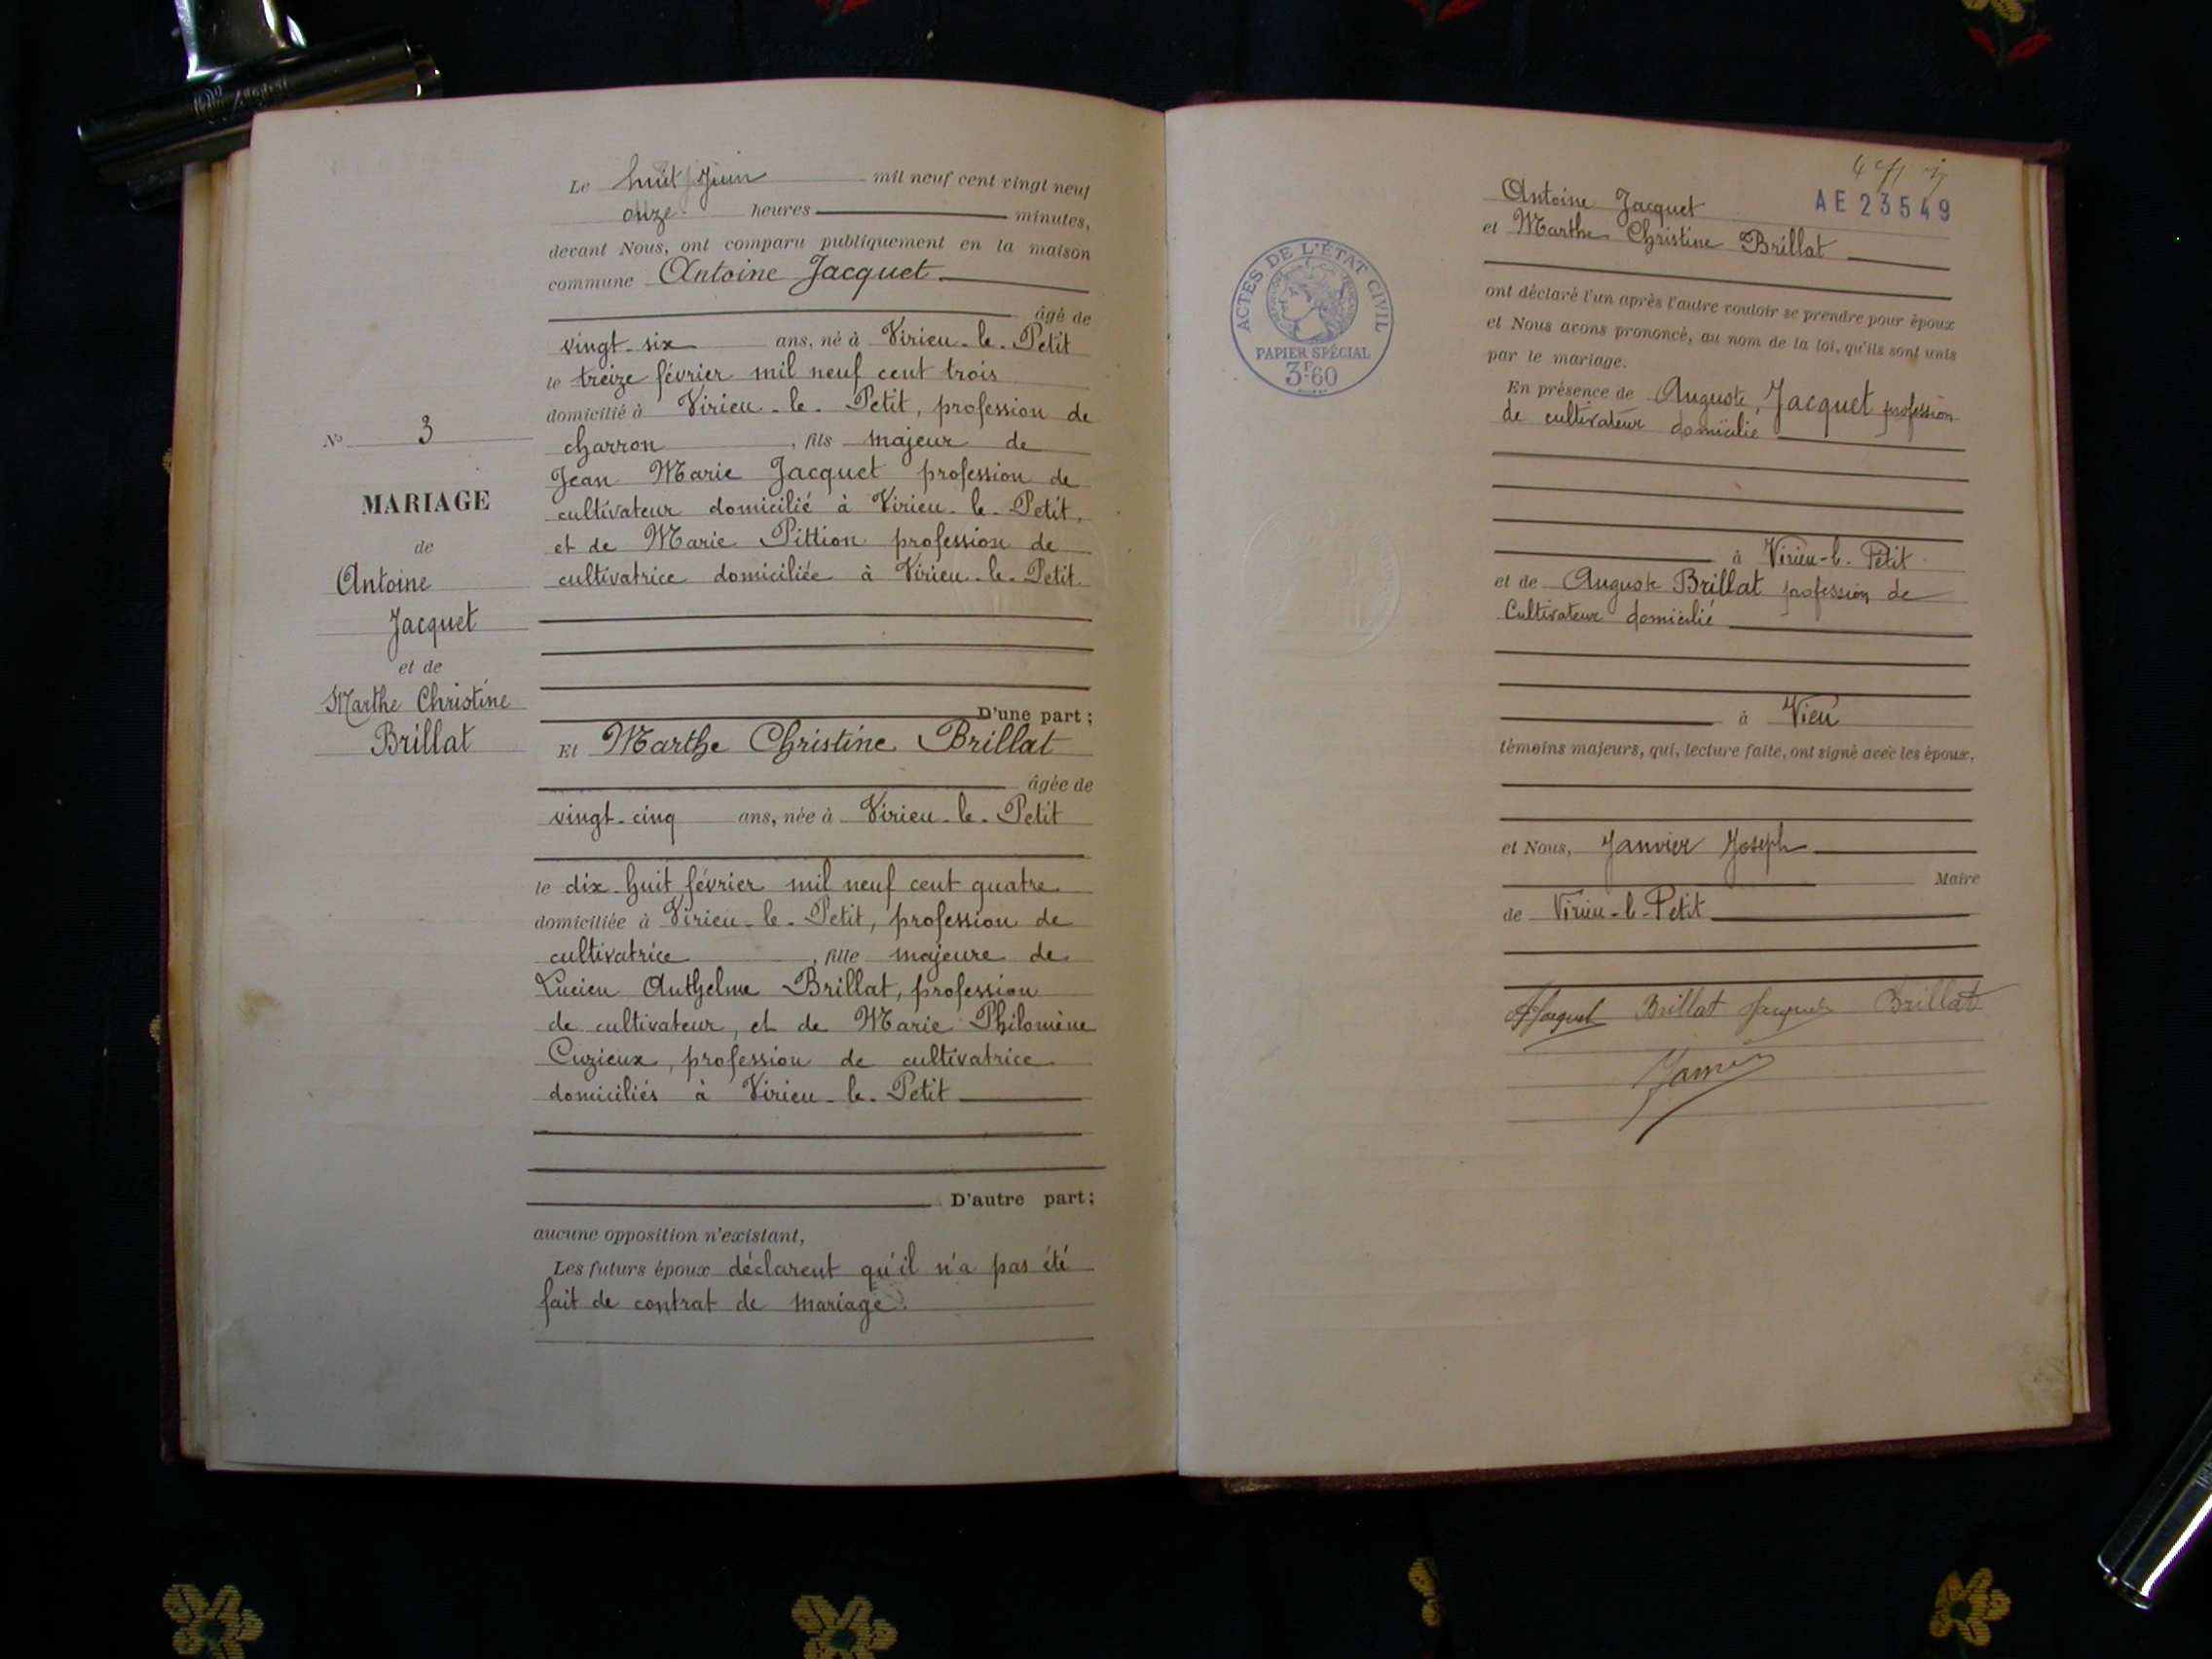 N° 3
MARIAGE
de
Antoine
Jacquet
et de
Marthe Christine
Brillat
Le huit Juin mil neuf cent vingt neuf
onze heures minutes,
devant Nous, ont comparu publiquement en la maison
commune Antoine Jacquet
âgé de
vingt-six ans, né à Virieu-le-Petit
le treize février mil neuf cent trois
domicilié à Virieu-le-Petit, profession de
charron, fils majeur de
Jean Marie Jacquet profession de
cultivateur domicilié à Virieu-le-Petit,
et de Marie Pittion profession de
cultivatrice domiciliée à Virieu-le-Petit
D'une part ;
Et Marthe Christine Brillat
âgée de
vingt-cinq ans, née à Virieu-le-Petit
le dix-huit février mil neuf cent quatre
domiciliée à Virieu-le-Petit, profession de
cultivatrice, fille majeure de
Lucien Anthelme Brillat, profession
de cultivateur, et de Marie Philomène
Cuzieux, profession de cultivatrice
domiciliés à Virieu-le-Petit
D'autre part ;
aucune opposition n'existant,
Les futurs époux déclarent qu'il n'a pas été
fait de contrat de mariage.
ACTES DE L'ÉTAT CIVIL
PAPIER SPÉCIAL
3F60
AE 23549
Antoine Jacquet
et Marthe Christine Brillat
ont déclaré l'un après l'autre vouloir se prendre pour époux
et Nous avons prononcé, au nom de la loi, qu'ils sont unis
par le mariage.
En présence de Auguste, Jacquet profession
de cultivateur domicilié
à Virieu-le-Petit
et de Auguste Brillat profession de
Cultivateur domicilié
à Vieu
témoins majeurs, qui, lecture faite, ont signé avec les époux,
et Nous, Janvier Joseph
Maire
de Virieu-le-Petit
A Jacquet Brillat Jacquet Brillat